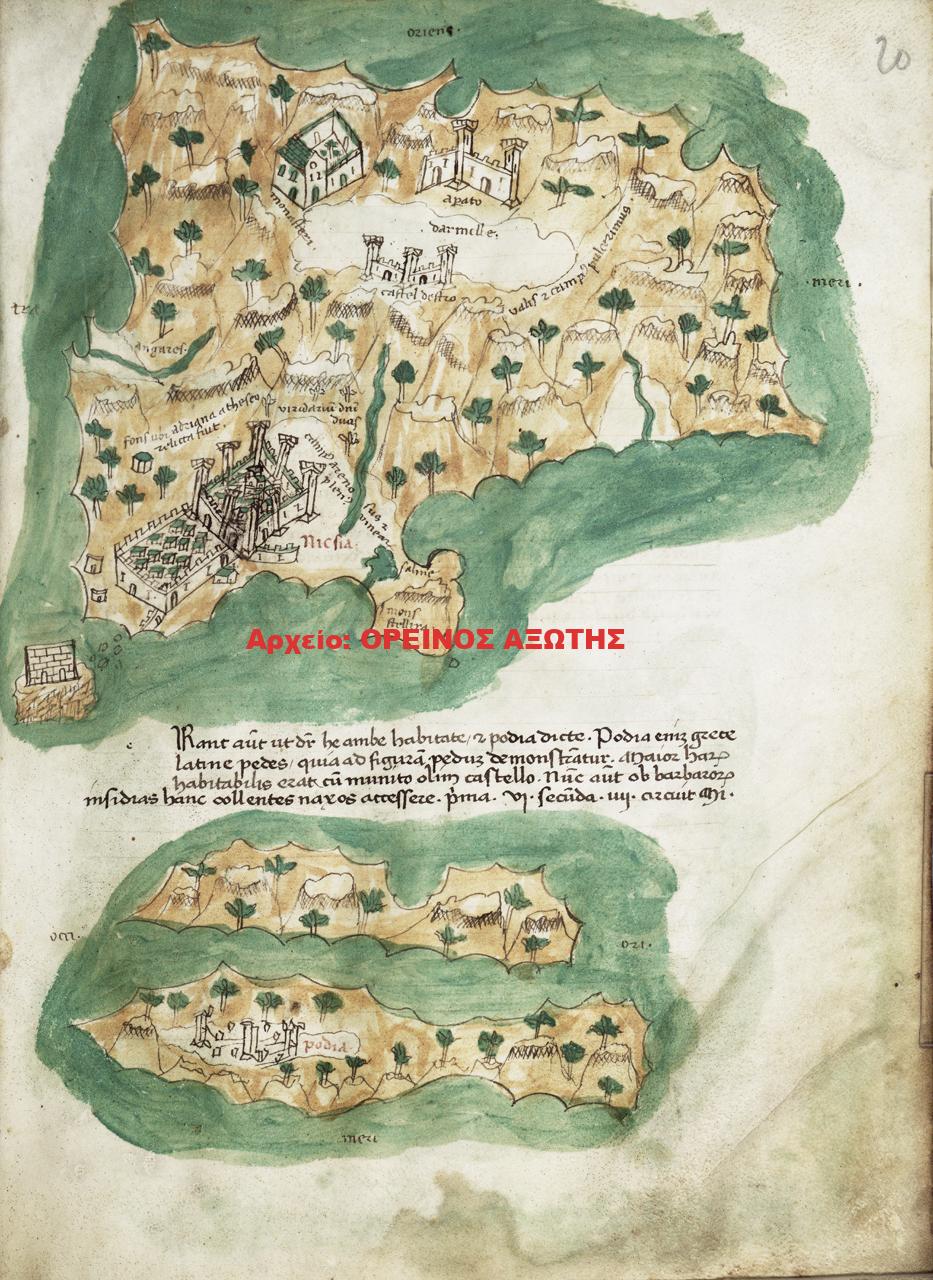 oriens.
20
monasteri
apato
darmille.
castel destro
vallis 2 campꝰ pulcerimus
meri.
tra
angares.
fons ubi adriana a theseo
relicta fuit.
viridariũ dñi
ducis
campꝰ areno
plenꝰ
Nicsia.
saline
mons
stellira
Αρχείο: ΟΡΕΙΝΟΣ ΑΞΩΤΗΣ
Rant aũt ut dr̃ he ambe habitate, 2 podia dicte. Podia eniz grece
latine pedes, quia ad figurã peduz demonstrãtur. Maior harꝝ
habitabilis erat cũ munito olim castello. Nũc aut ob barbarorꝝ
insidias hanc collentes naxos accessere. p̃ma. vi. secũda. iiii. circuit mi.
occi.
ori.
podia
meri